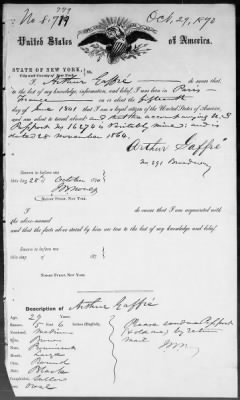 779
No 8.789
Oct. 29, 1870
United States of America.
STATE OF NEW YORK,
City and County of New York,
I Arthur Gaffié do swear that,
to the best of my knowledge, information, and belief I was born in Paris
France on or about the fifteenth
day of June 1841 that I am a legal citizen of the United States of America,
and am about to travel abroad and that the accompanying U.S.
Passport No 16274 is veritably mine and is
dated 28 November 1864.
Arthur Gaffié
No 291 Broadway
Sworn to before me
this 28th October 1870
Notary Public, New York.
I
do swear that I am acquainted with
the above-named
and that the facts above stated by him are true to the best of my knowledge and belief.
Sworn to before me
this day of 187
Notary Public, New York.
Description of Arthur Gaffié
Age: 29 Years
Stature: 5 Feet 6 Inches (English)
Forehead: Medium
Eyes: Brown
Nose: Prominent
Mouth: Large
Chin: Round
Hair: Black
Complexion: Sallow
Face: Oval
Please send on Passport
by return
mail